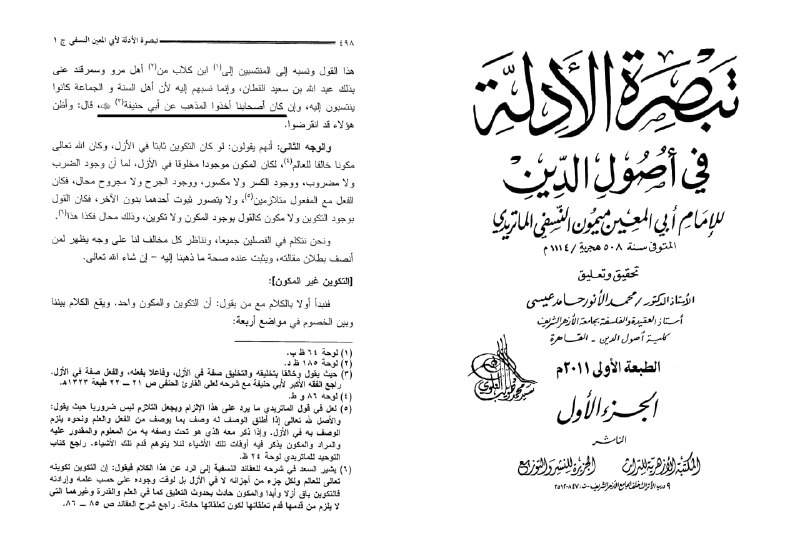 تبصرة الأدلة
في أصول الدين
للإمام أبي المعين ميمون النسفي الماتريدي
المتوفى سنة ٥٠٨ هجرية / ١١١٤م
تحقيق وتعليق
الأستاذ الدكتور / محمد الأنور حامد عيسى
أستاذ العقيدة والفلسفة بجامعة الأزهر الشريف
كلية أصول الدين - القاهرة
الطبعة الأولى ٢٠١١م
الجزء الأول
الناشر
المكتبة الأزهرية للتراث الجزيرة للنشر والتوزيع
٤٩٨ تبصرة الأدلة لأبي المعين النسفي ج ١
هذا القول ونسبه إلى المنتسبين إلى(١) ابن كلاب من(٢) أهل مرو وسمرقند عنى
بذلك عبد الله بن سعيد القطان، وإنما نسبهم إليه لأن أهل السنة و الجماعة كانوا
ينتسبون إليه، وإن كان أصحابنا أخذوا المذهب عن أبي حنيفة(٣) ، قال: وأظن
هؤلاء قد انقرضوا.
والوجه الثاني: أنهم يقولون: لو كان التكوين ثابتا في الأزل، وكان الله تعالى
مكونا خالقا للعالم(٤)، لكان المكون موجودا مخلوقا في الأزل، لما أن وجود الضرب
ولا مضروب، ووجود الكسر ولا مكسور، ووجود الجرح ولا مجروح محال، فكان
الفعل مع المفعول متلازمين(٥)، ولا يتصور ثبوت أحدهما بدون الآخر، فكان القول
بوجود التكوين ولا مكون كالقول بوجود المكون ولا تكوين، وذلك محال فكذا هذا(٦).
ونحن نتكلم في الفصلين جميعا، ونناظر كل مخالف لنا على وجه يظهر لمن
أنصف بطلان مقالته، ويثبت عنده صحة ما ذهبنا إليه - إن شاء الله تعالى.
[التكوين غير المكون]:
فنبدأ أولا بالكلام مع من يقول: أن التكوين والمكون واحد. ويقع الكلام بيننا
وبين الخصوم في مواضع أربعة:
(١) لوحة ٦٤ ظ ب.
(٢) لوحة ١٨٥ ظ د.
(٣) حيث يقول وخالقا بتخليقه والتخليق صفة في الأزل، وفاعلا بفعله، والفعل صفة في الأزل.
راجع الفقه الأكبر لأبي حنيفة مع شرحه لعلي القارئ الحنفي ص ٢١ - ٢٢ طبعة ١٣٢٣هـ.
(٤) لوحة ٨٦ و ط.
(٥) لعل في قول الماتريدي ما يرد على هذا الإلزام ويجعل التلازم ليس ضروريا حيث يقول:
والأصل لله تعالى إذا أطلق الوصف له وصف بما يوصف من الفعل والعلم ونحوه يلزم
الوصف به في الأزل. وإذا ذكر معه الذي هو تحت وصفه به من المعلوم والمقدور عليه
والمراد والمكون يذكر فيه أوقات تلك الأشياء لئلا يتوهم قدم تلك الأشياء. راجع كتاب
التوحيد للماتريدي لوحة ٢٤ ظ.
(٦) يشير السعد في شرحه للعقائد النسفية إلى الرد عن هذا الكلام فيقول: إن التكوين تكوينه
تعالى للعالم ولكل جزء من أجزائه لا في الأزل بل لوقت وجوده على حسب علمه وإرادته
فالتكوين باق أزلا وأبدا والمكون حادث بحدوث التعليق كما في العلم والقدرة وغيرهما التي
لا يلزم من قدمها قدم تعلقاتها لكون تعلقاتها حادثة. راجع شرح العقائد ص ٨٥ - ٨٦.